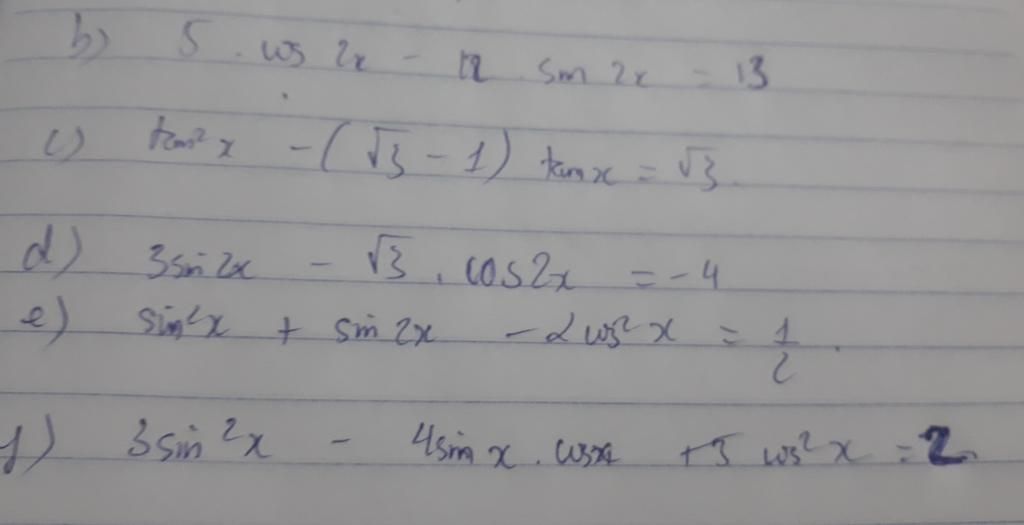 b) 5 . cos 2x - 12 sin 2x = 13
c) tan²x - (√3 - 1) tanx = √3.
d) 3sin2x - √3 . cos2x = -4
e) sin²x + sin 2x - 2cos²x = 1/2.
f) 3sin²x - 4sinx . cosx + 5 cos²x = 2.